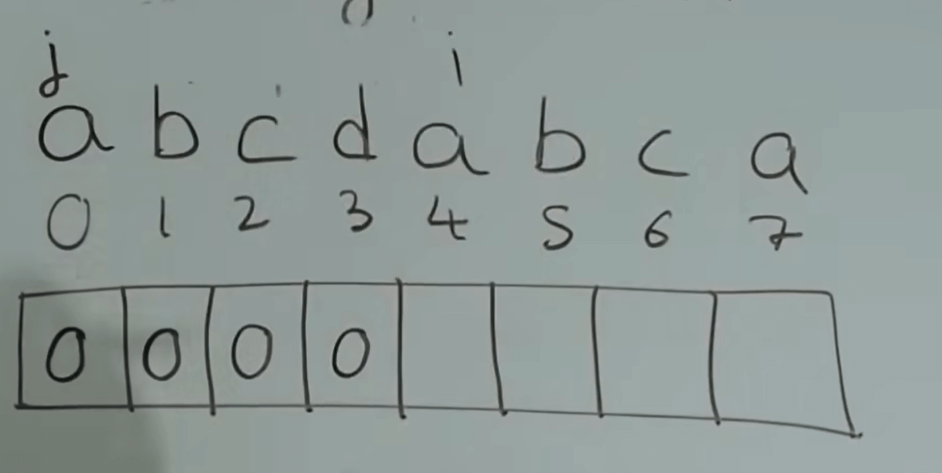 j i
a b c d a b c a
0 1 2 3 4 5 6 7
0 0 0 0